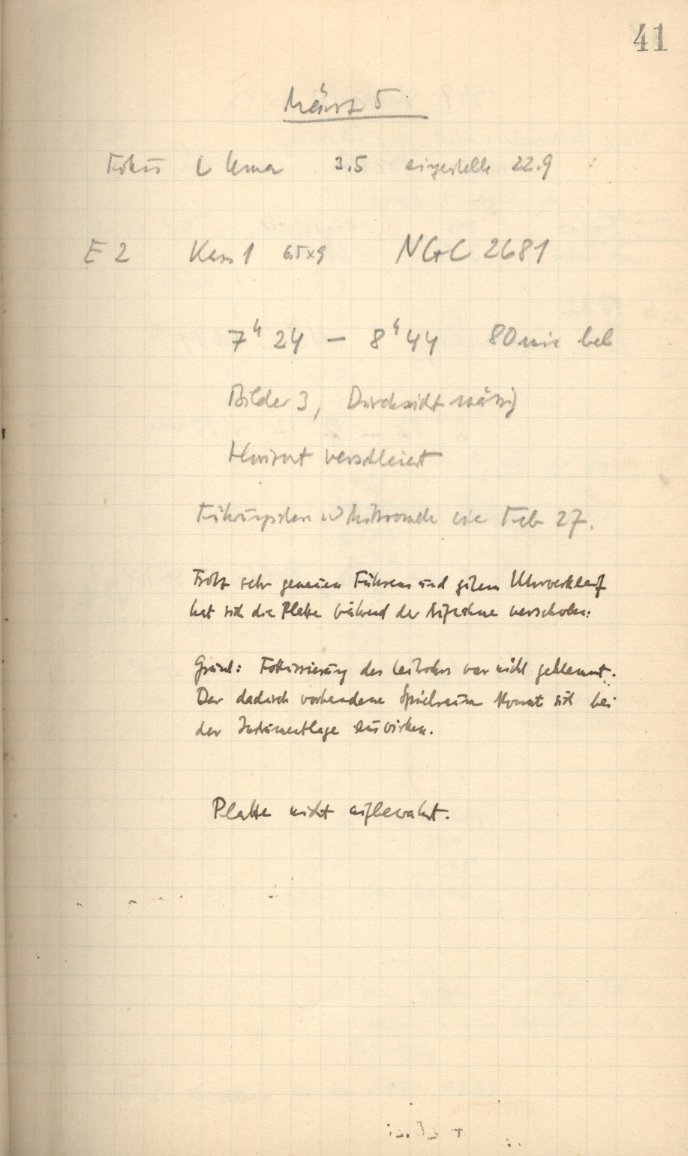 41
März 5
Fokus L Uma 3.5 eingestellt 22.9
E 2 Kass 1 6.5x9 NGC 2681
7h 24 – 8h 44 80 min bel
Bilder 3, Durchsicht mässig
Horizont verschleiert
Führungsstern u Mikrometer wie Feb 27.
Trotz sehr genauem Führens und gutem Uhrwerklauf
hat sich die Platte während der Aufnahme verschoben.
Grund: Fokussierung des Leitrohrs war nicht geklemmt.
Der dadurch vorhandene Spielraum konnt sich bei
der Instrumentlage auswirken.
Platte nicht aufbewahrt.